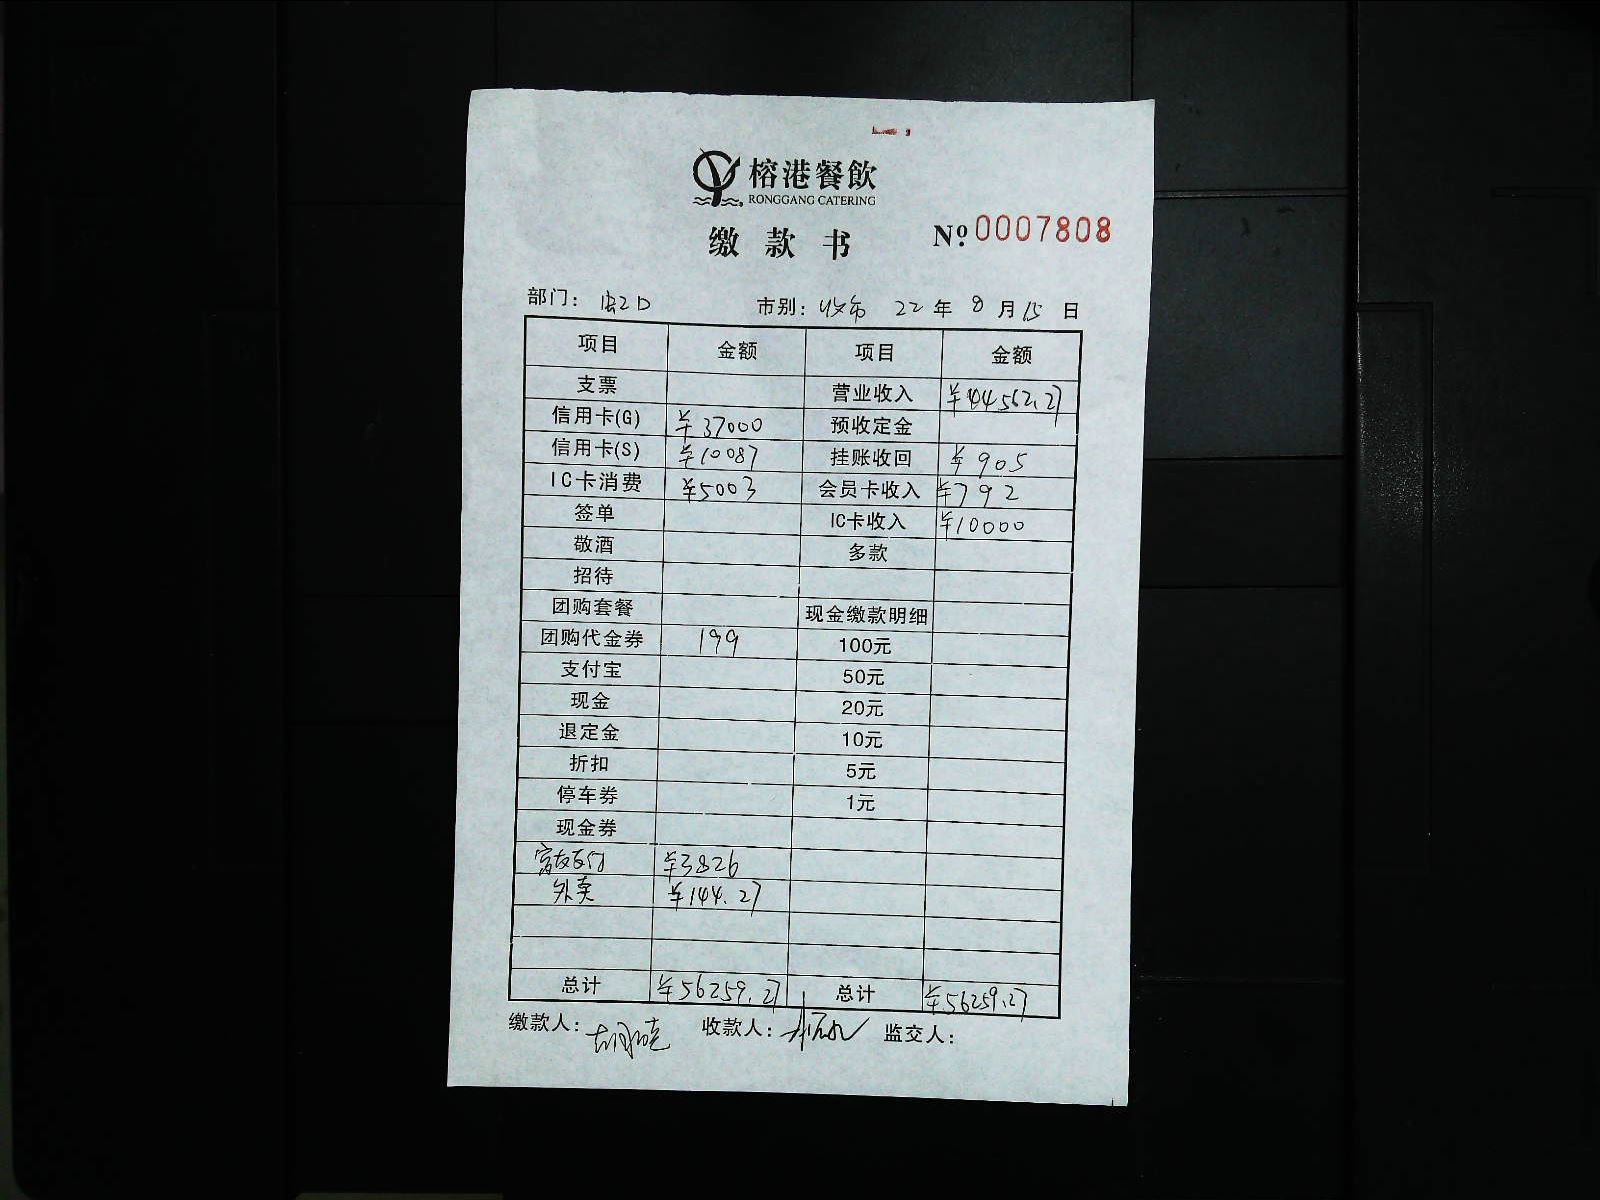 榕港餐飲
RONGGANG CATERING
缴 款 书 Nº 0007808
部门： 市别：收市 22 年 8 月 15 日
项目 金额 项目 金额
支票 营业收入 ¥44562.27
信用卡(G) ¥37000 预收定金
信用卡(S) ¥10087 挂账收回 ¥905
IC卡消费 ¥5003 会员卡收入 ¥792
签单 IC卡收入 ¥10000
敬酒 多款
招待
团购套餐 现金缴款明细
团购代金券 199 100元
支付宝 50元
现金 20元
退定金 10元
折扣 5元
停车券 1元
现金券
富友支付 ¥3826
外卖 ¥144.27
总计 ¥56259.27 总计 ¥56259.27
缴款人： 收款人： 监交人：